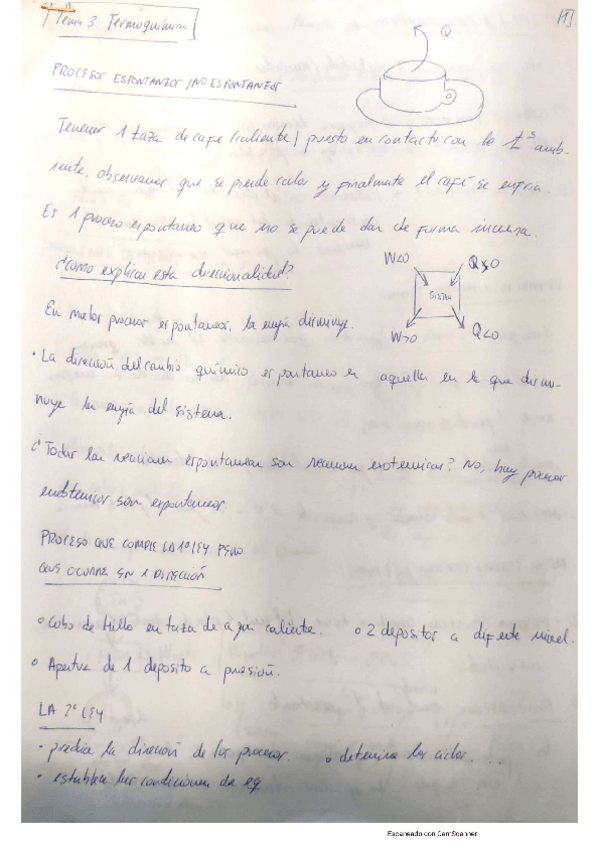 Tema 3: Termoquímica
[1]
Q
PROCESOS ESPONTANEOS / NO ESPONTANEOS
Tenemos 1 taza de cafe (caliente) puesto en contacto con la tª amb-
iente, observamos que se pierde calor y finalmente el café se enfria.
Es 1 proceso espontaneo que no se puede dar de forma inversa.
¿Como explicar esta direccionalidad?
W<0 Q>0
SISTEMA
W>0 Q<0
En muchos procesos espontaneos, la energía disminuye.
• La dirección del cambio químico espontaneo es aquella en la que dismi-
nuye la energía del sistema.
¿Todas las reacciones espontaneas son reacciones exotermicas? No, hay procesos
endotermicos son espontaneos.
PROCESO QUE CUMPLE LA 1ª LEY PERO
QUE OCURRE EN 1 DIRECCIÓN
• Cubo de hielo en taza de agua caliente. • 2 depositos a diferente nivel.
• Apertura de 1 deposito a presión.
LA 2ª LEY
• predice la dirección de los procesos. • determina los ciclos...
• establece las condiciones de eq
Escaneado con CamScanner